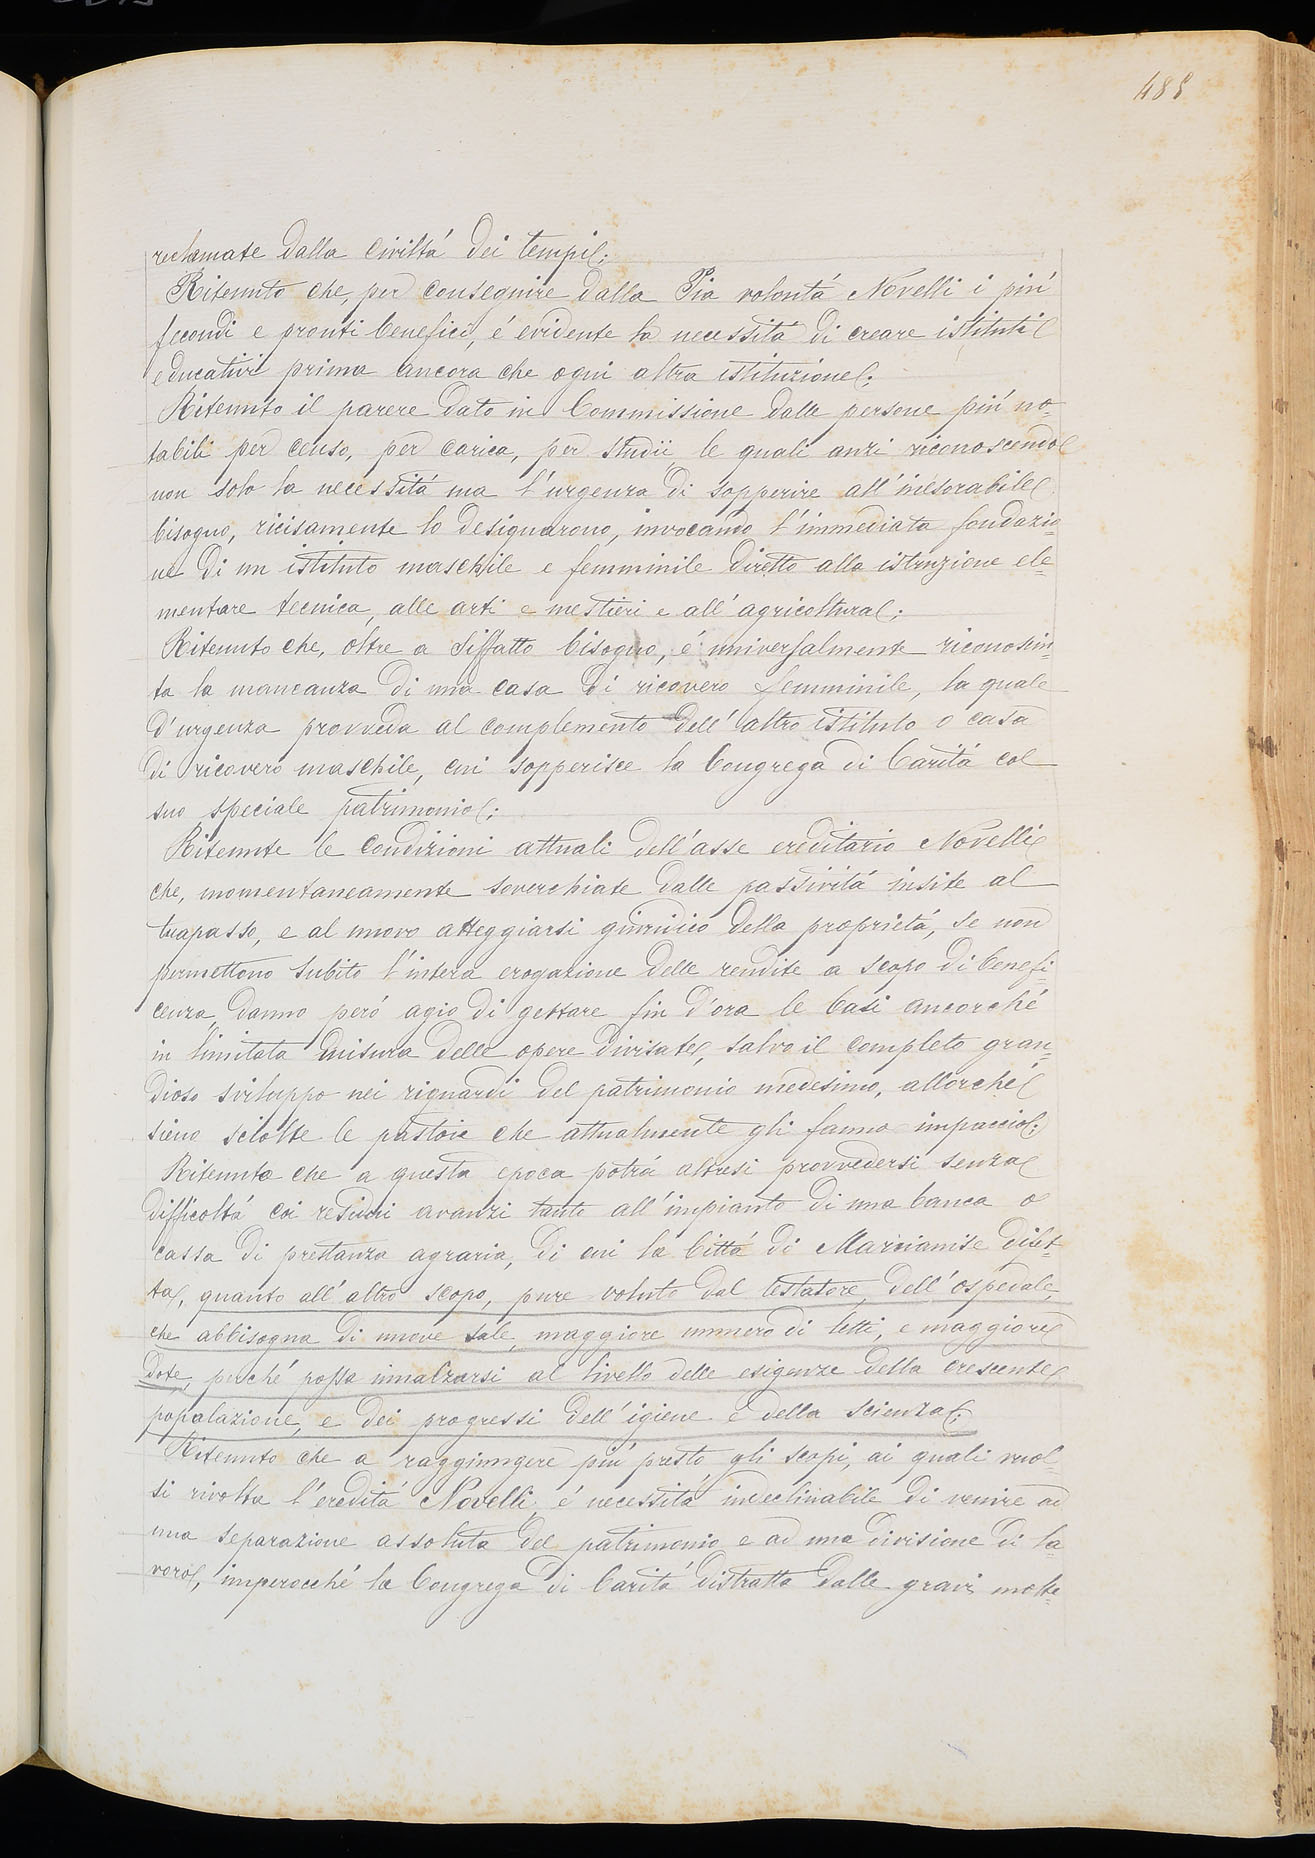 485
reclamate dalla civiltá dei tempi;
Ritenuto che, per conseguire dalla Pia volontá Novelli i piú
fecondi e pronti benefici, é evidente la necessitá di creare istituti
educativi prima ancora che ogni altra istituzione;
Ritenuto il parere dato in Commissione dalle persone piú no=
tabili per censo, per carica, per studii le quali anzi riconoscendo
non solo la necessitá ma l'urgenza di sopperire all'inesorabile
bisogno, ricisamente lo designarono, invocando l'immediata fondazio=
ne di un istituto maschile e femminile diretto alla istruzione ele=
mentare tecnica, alle arti e mestieri e all'agricoltura;
Ritenuto che, oltre a siffatto bisogno, é universalmente riconosciu=
ta la mancanza di una casa di ricovero femminile, la quale
d'urgenza provveda al complemento dell'altro istituto o casa
di ricovero maschile, cui sopperisce la Congrega di Caritá col
suo speciale patrimonio;
Ritenute le condizioni attuali dell'asse ereditario Novelli
che, momentaneamente soverchiate dalle passivitá insite al
trapasso, e al nuovo atteggiarsi giuridico della proprietá, se non
permettono subito l'intera erogazione delle rendite a scopo di benefi=
cenza, danno peró agio di gettare fin d'ora le basi ancorché
in limitata misura delle opere divisate, salvo il completo gran=
dioso sviluppo nei riguardi del patrimonio medesimo, allorché
sieno sciolte le pastoie che attualmente gli fanno impaccio;
Ritenuto che a questa epoca potrá altresi provvedersi senza
difficoltá coi residui avanzi tanto all'impianto di una banca o
cassa di prestanza agraria, di cui la Cittá di Marcianise difet=
ta, quanto all'altro scopo, pure voluto dal testatore, dell'ospedale,
che abbisogna di nuove sale, maggiore numero di letti, e maggiore
dote, perché possa innalzarsi al livello delle esigenze della crescente
popolazione, e dei progressi dell'igiene e della scienza;
Ritenuto che a raggiungere piú presto gli scopi, ai quali vuol=
si rivolta l'ereditá Novelli, é necessitá indeclinabile di venire ad
una separazione assoluta del patrimonio e ad una divisione di la=
voro, imperocché la Congrega di Caritá distratta dalle gravi molte=